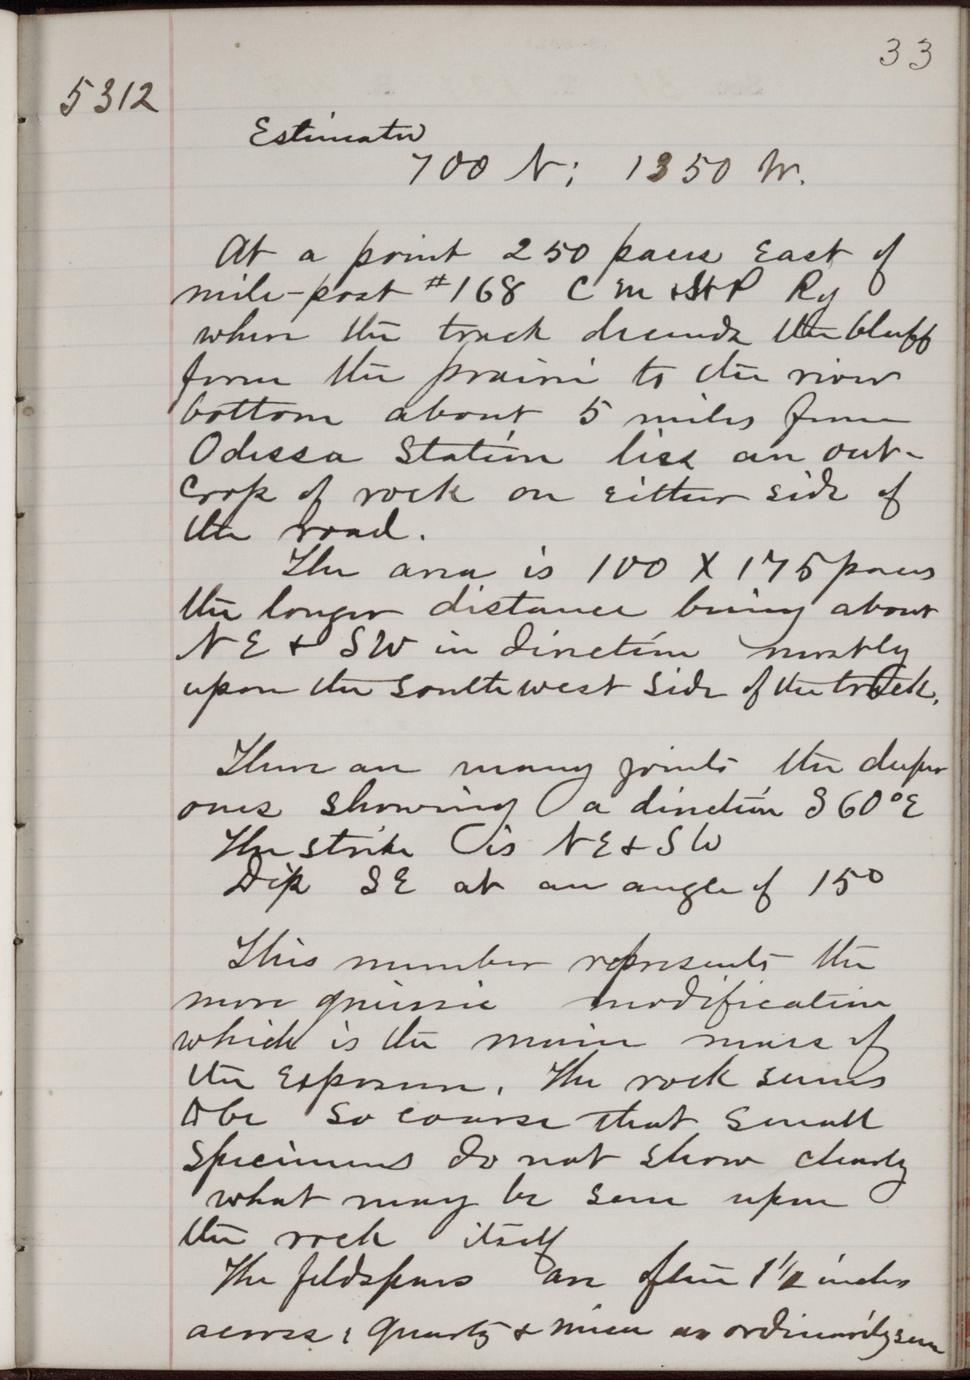 33
5312
Estimated
700 N; 1350 W.
At a point 250 paces East of
mile-post #168 C M & St P Ry
where the track descends the bluff
from the prairie to the river
bottom about 5 miles from
Odessa Station lies an out-
crop of rock on either side of
the road.
The area is 100 X 175 paces
the longer distance being about
NE & SW in direction mostly
upon the southwest side of the track.
There are many joints the deeper
ones showing a direction S 60° E
The strike is NE & SW
Dip SE at an angle of 15°
This number represents the
more gneissic modification
which is the main mass of
the exposure. The rock seems
to be so coarse that small
specimens do not show clearly
what may be seen upon
the rock itself
The feldspars are often 1 1/2 inches
across; quartz & mica as ordinarily seen